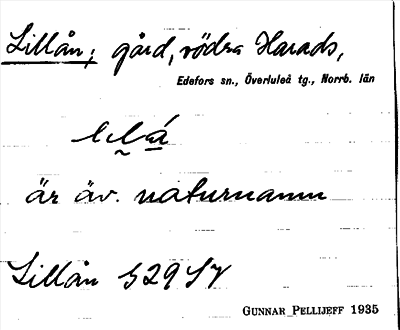 Lillån; gård, södra Harads,
Edefors sn., Överluleå tg., Norrb. län
är äv. naturnamn
Lillån S29SV
GUNNAR PELLIJEFF 1935